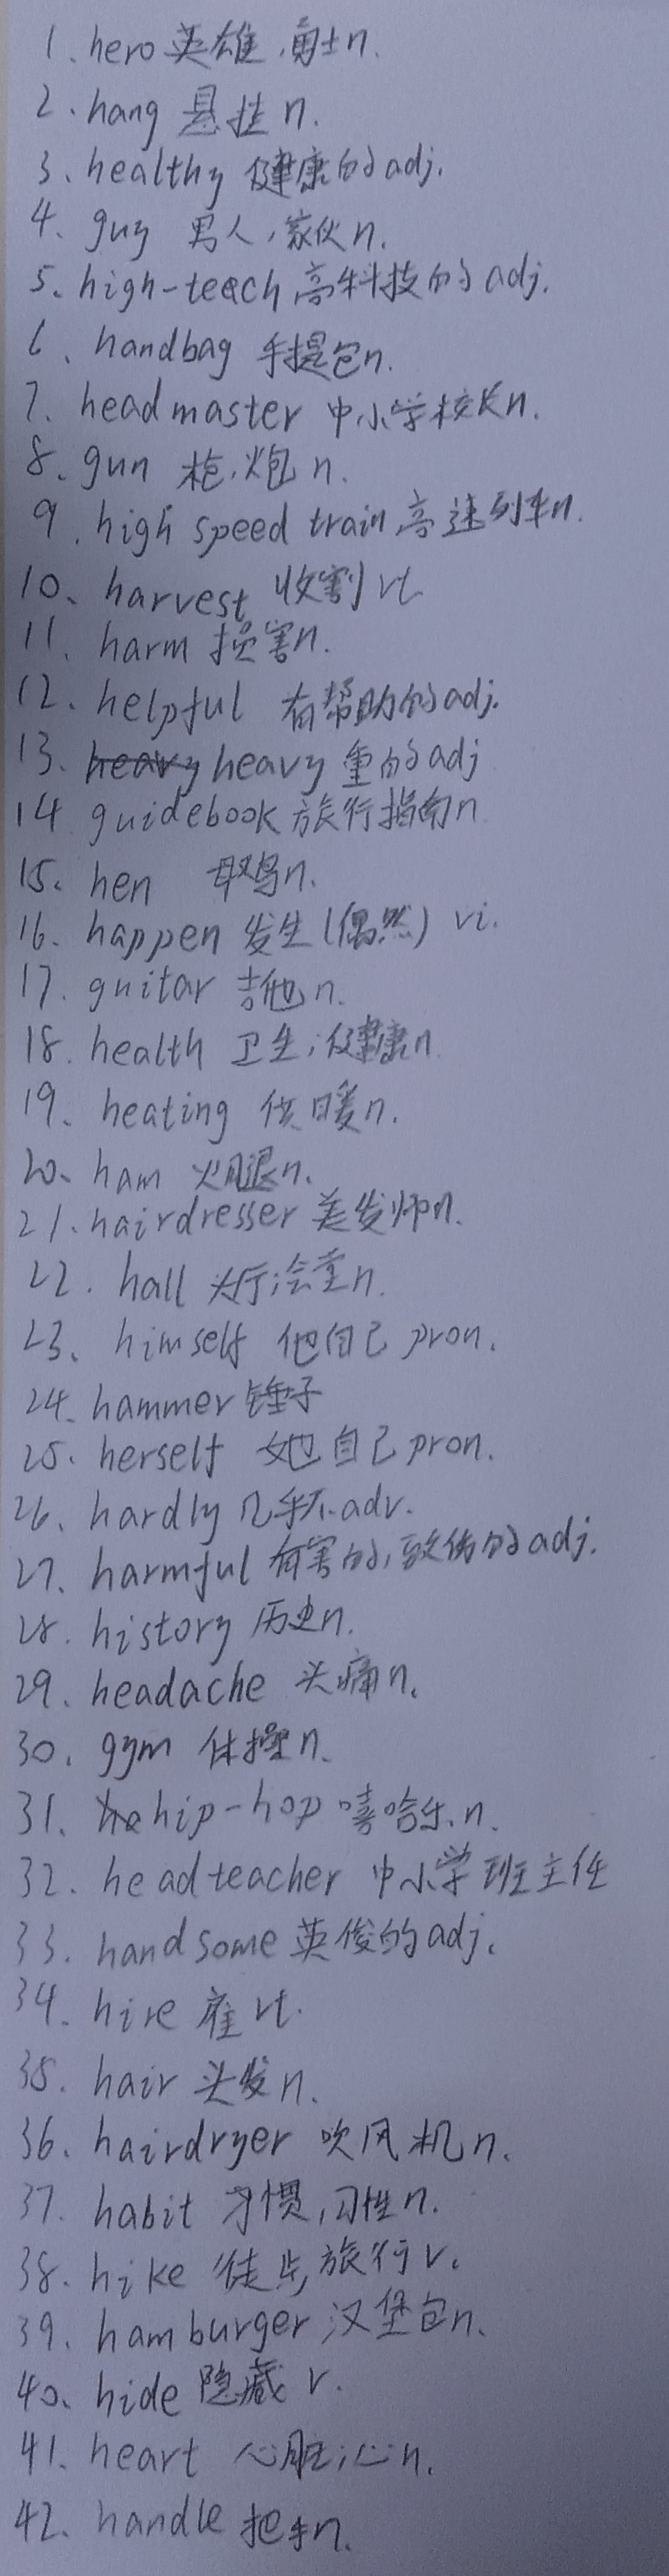 1. hero 英雄,勇士n.
2. hang 悬挂 n.
3、healthy 健康的adj.
4、guy 男人,家伙n.
5、high-teach 高科技的adj.
6、handbag 手提包n.
7、headmaster 中小学校长n.
8、gun 枪,炮n.
9、high speed train 高速列车n.
10、harvest 收割 vt
11、harm 损害n.
12、helpful 有帮助的adj.
13、heavy heavy 重的adj
14 guidebook 旅行指南n
15、hen 母鸡n.
16、happen 发生(偶然) vi.
17. guitar 吉他n.
18. health 卫生,健康n
19、heating 供暖n.
20、ham 火腿n.
21. hairdresser 美发师n.
22. hall 大厅;会堂n.
23、himself 他自己 pron.
24、hammer 锤子
25. herself 她自己 pron.
26、hardly 几乎不adv.
27、harmful 有害的,致伤的adj.
28. history 历史n.
29、headache 头痛n.
30、gym 体操n.
31、he hip-hop 嘻哈乐n.
32、headteacher 中小学班主任
33. handsome 英俊的adj.
34、hire 雇vt.
35. hair 头发n.
36、hairdryer 吹风机n.
37. habit 习惯,习性n.
38. hike 徒步旅行v.
39. hamburger 汉堡包n.
40、hide 隐藏 v.
41、heart 心脏;心n.
42、handle 把手n.